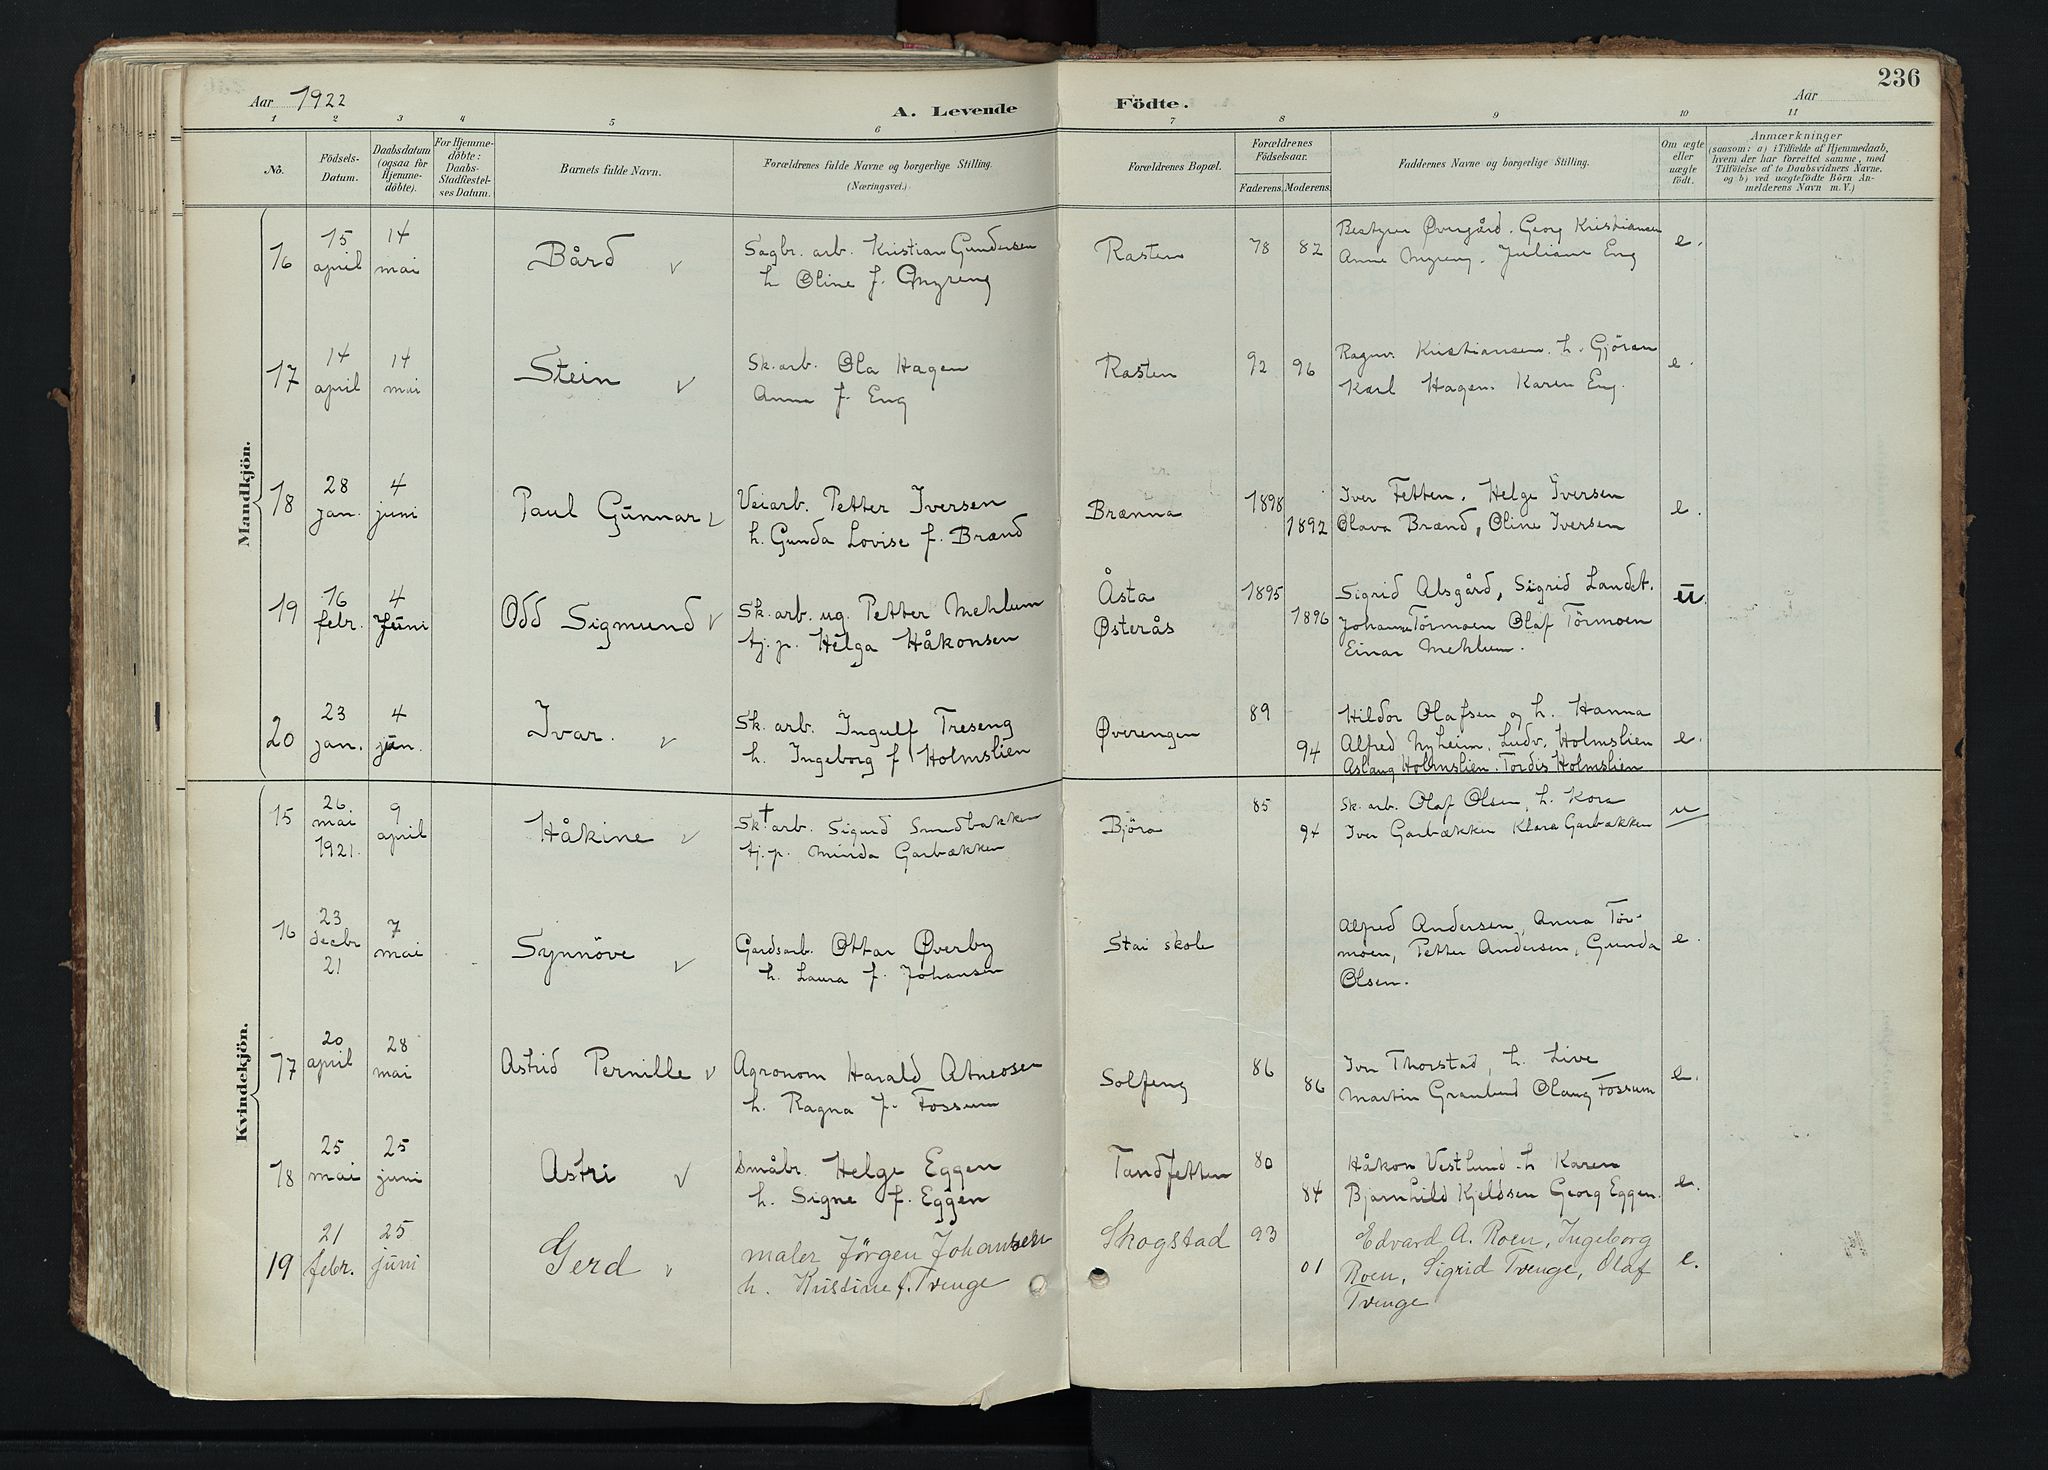 236
Aar 1922
A. Levende Födte.
Aar
1 2 3 4 5 6 7 8 9 10 11
No.
Födsels-Datum.
Daabsdatum (ogsaa for Hjemmedöbte).
For Hjemmedöbte: Daabs-Stadfæstelses Datum.
Barnets fulde Navn.
Forældrenes fulde Navne og borgerlige Stilling. (Næringsvei.)
Forældrenes Bopæl.
Forældrenes Födselsaar.
Faderens. Moderens.
Faddernes Navne og borgerlige Stilling.
Om ægte eller uægte födt.
Anmærkninger
(saasom: a) i Tilfælde af Hjemmedaab,
hvem der har forrettet samme, med
Tilföielse af to Daabsvidners Navne.
og b) ved uægtefödte Börn Anmelderens Navn m. V.)
Mandkjön.
16 15 april 14 mai Bård v
Sagbr. arb. Kristian Gundersen
h Oline f. Myreng
Rasten 78 82
Bestyrer Øvergård. Georg Kristiansen
Anne Myreng. Juliane Eng
e.
17 14 april 14 mai Stein v
Sk. arb. Ola Hagen
Anna f. Eng
Rasten 92 96
Ragnv. Kristiansen. h. Gjöran
Karl Hagen. Karen Eng.
e.
18 28 jan. 4 juni Paul Gunnar v
Veiarb. Petter Iversen
h. Gunda Lovise f. Brænd
Brænna 1898 1892
Iver Fetten. Helge Iversen
Olava Brænd, Oline Iversen
e.
19 16 febr. 4 Juni Odd Sigmund v
Sk. arb. ug. Petter Mehlum
tj. p. Helga Håkonsen
Åsta
Østerås
1895 1896
Sigrid Alsgård, Sigrid Landet.
Johanne Törmoen Olaf Törmoen
Einar Mehlum.
u.
20 23 jan. 4 jun. Ivar. v
Sk. arb. Ingulf Treseng
h. Ingeborg f Holmslien
Øverengen 89 94
Hildor Olafsen og h. Hanna
Alfred Nyheim. Ludv. Holmslien
Aslaug Holmslien. Tordis Holmslien
e.
Kvindekjön.
15 26 mai 1921. 9 april Håkine v
Sk† arb. Sigurd Sundbakken
tj. p. Minda Garbækken
Björa 85 94
Sk. arb. Olaf Olsen, h. Kora
Iver Garbækken Klara Garbækken
u
16 23 decbr 21 7 mai Synnöve v
Gardsarb. Ottar Øverby
h. Laura f. Johansen
Stai skole
Alfred Andersen, Anna Tör-
moen, Petter Andersen, Gunda
Olsen.
e.
17 20 april 28 mai Astrid Pernille v
Agronom Harald Atneosen
h. Ragna f. Fossum
Solfeng 86 86
Iver Thorstad, h. Live
Martin Granlund Olaug Fossum
e.
18 25 mai 25 juni Astri v
Småbr. Helge Eggen
h. Signe f. Eggen
Tandfetten 80 84
Håkon Vestlund. h Karen
Bjarnhild Kjeldsen Georg Eggen.
e.
19 21 febr. 25 juni Gerd v
maler Jörgen Johansen
h. Kristine f. Tvenge
Skogstad 93 01
Edvard A. Roen, Ingeborg
Roen, Sigrid Tvenge, Olaf
Tvenge
e.